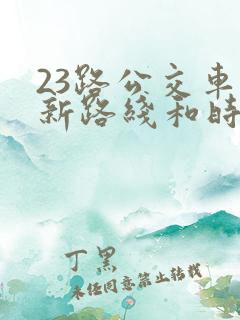 23路公交车
新路线和时
丁黑
未经同意禁止转载